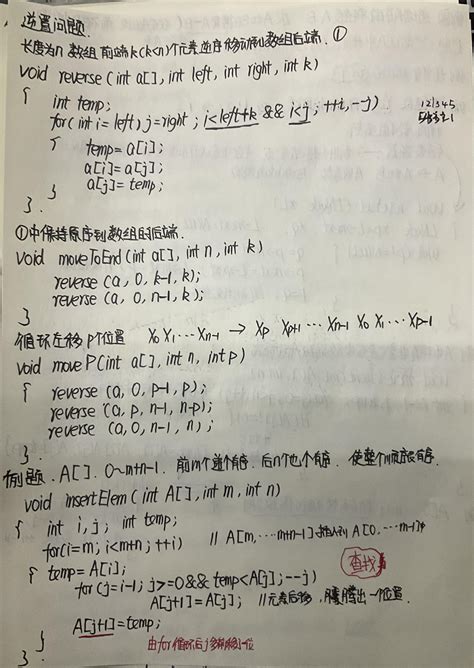 逆置问题.
长度为n 数组 前端k(k<n)个元素逆序移动到数组后端. ①
void reverse (int a[], int left, int right, int k)
{ int temp;
for( int i=left, j=right ; i<left+k && i<j ; ++i, --j)
1 2 3 4 5
{ temp=a[i];
a[i]=a[j];
a[j]=temp;
}
}.
①中保持原序到数组的后端.
void moveToEnd (int a[], int n, int k)
{ reverse (a, 0, k-1, k);
reverse (a, 0, n-1, k);
}
循环左移 p个位置 X0 X1 ... Xn-1 → Xp Xp+1 ... Xn-1 X0 X1 ... Xp-1
void move P(int a[], int n, int p)
{ reverse (a, 0, p-1, p);
reverse (a, p, n-1, n-p);
reverse (a, 0, n-1, n);
}.
例题. A[]. 0~m+n-1. 前m个递个有序. 后n个也个有序. 使整个顺序表有序.
void insertElem ( int A[], int m, int n)
{ int i, j; int temp;
for(i=m; i<m+n; ++i) // A[m,...m+n-1]插入到 A[0,...m-1]中
{ temp = A[i]; 查找
for (j=i-1; j>=0 && temp<A[j]; --j)
A[j+1]=A[j]; //元素后移, 腾出一个位置.
A[j+1]=temp;
} 由for循环后j多移一位
}